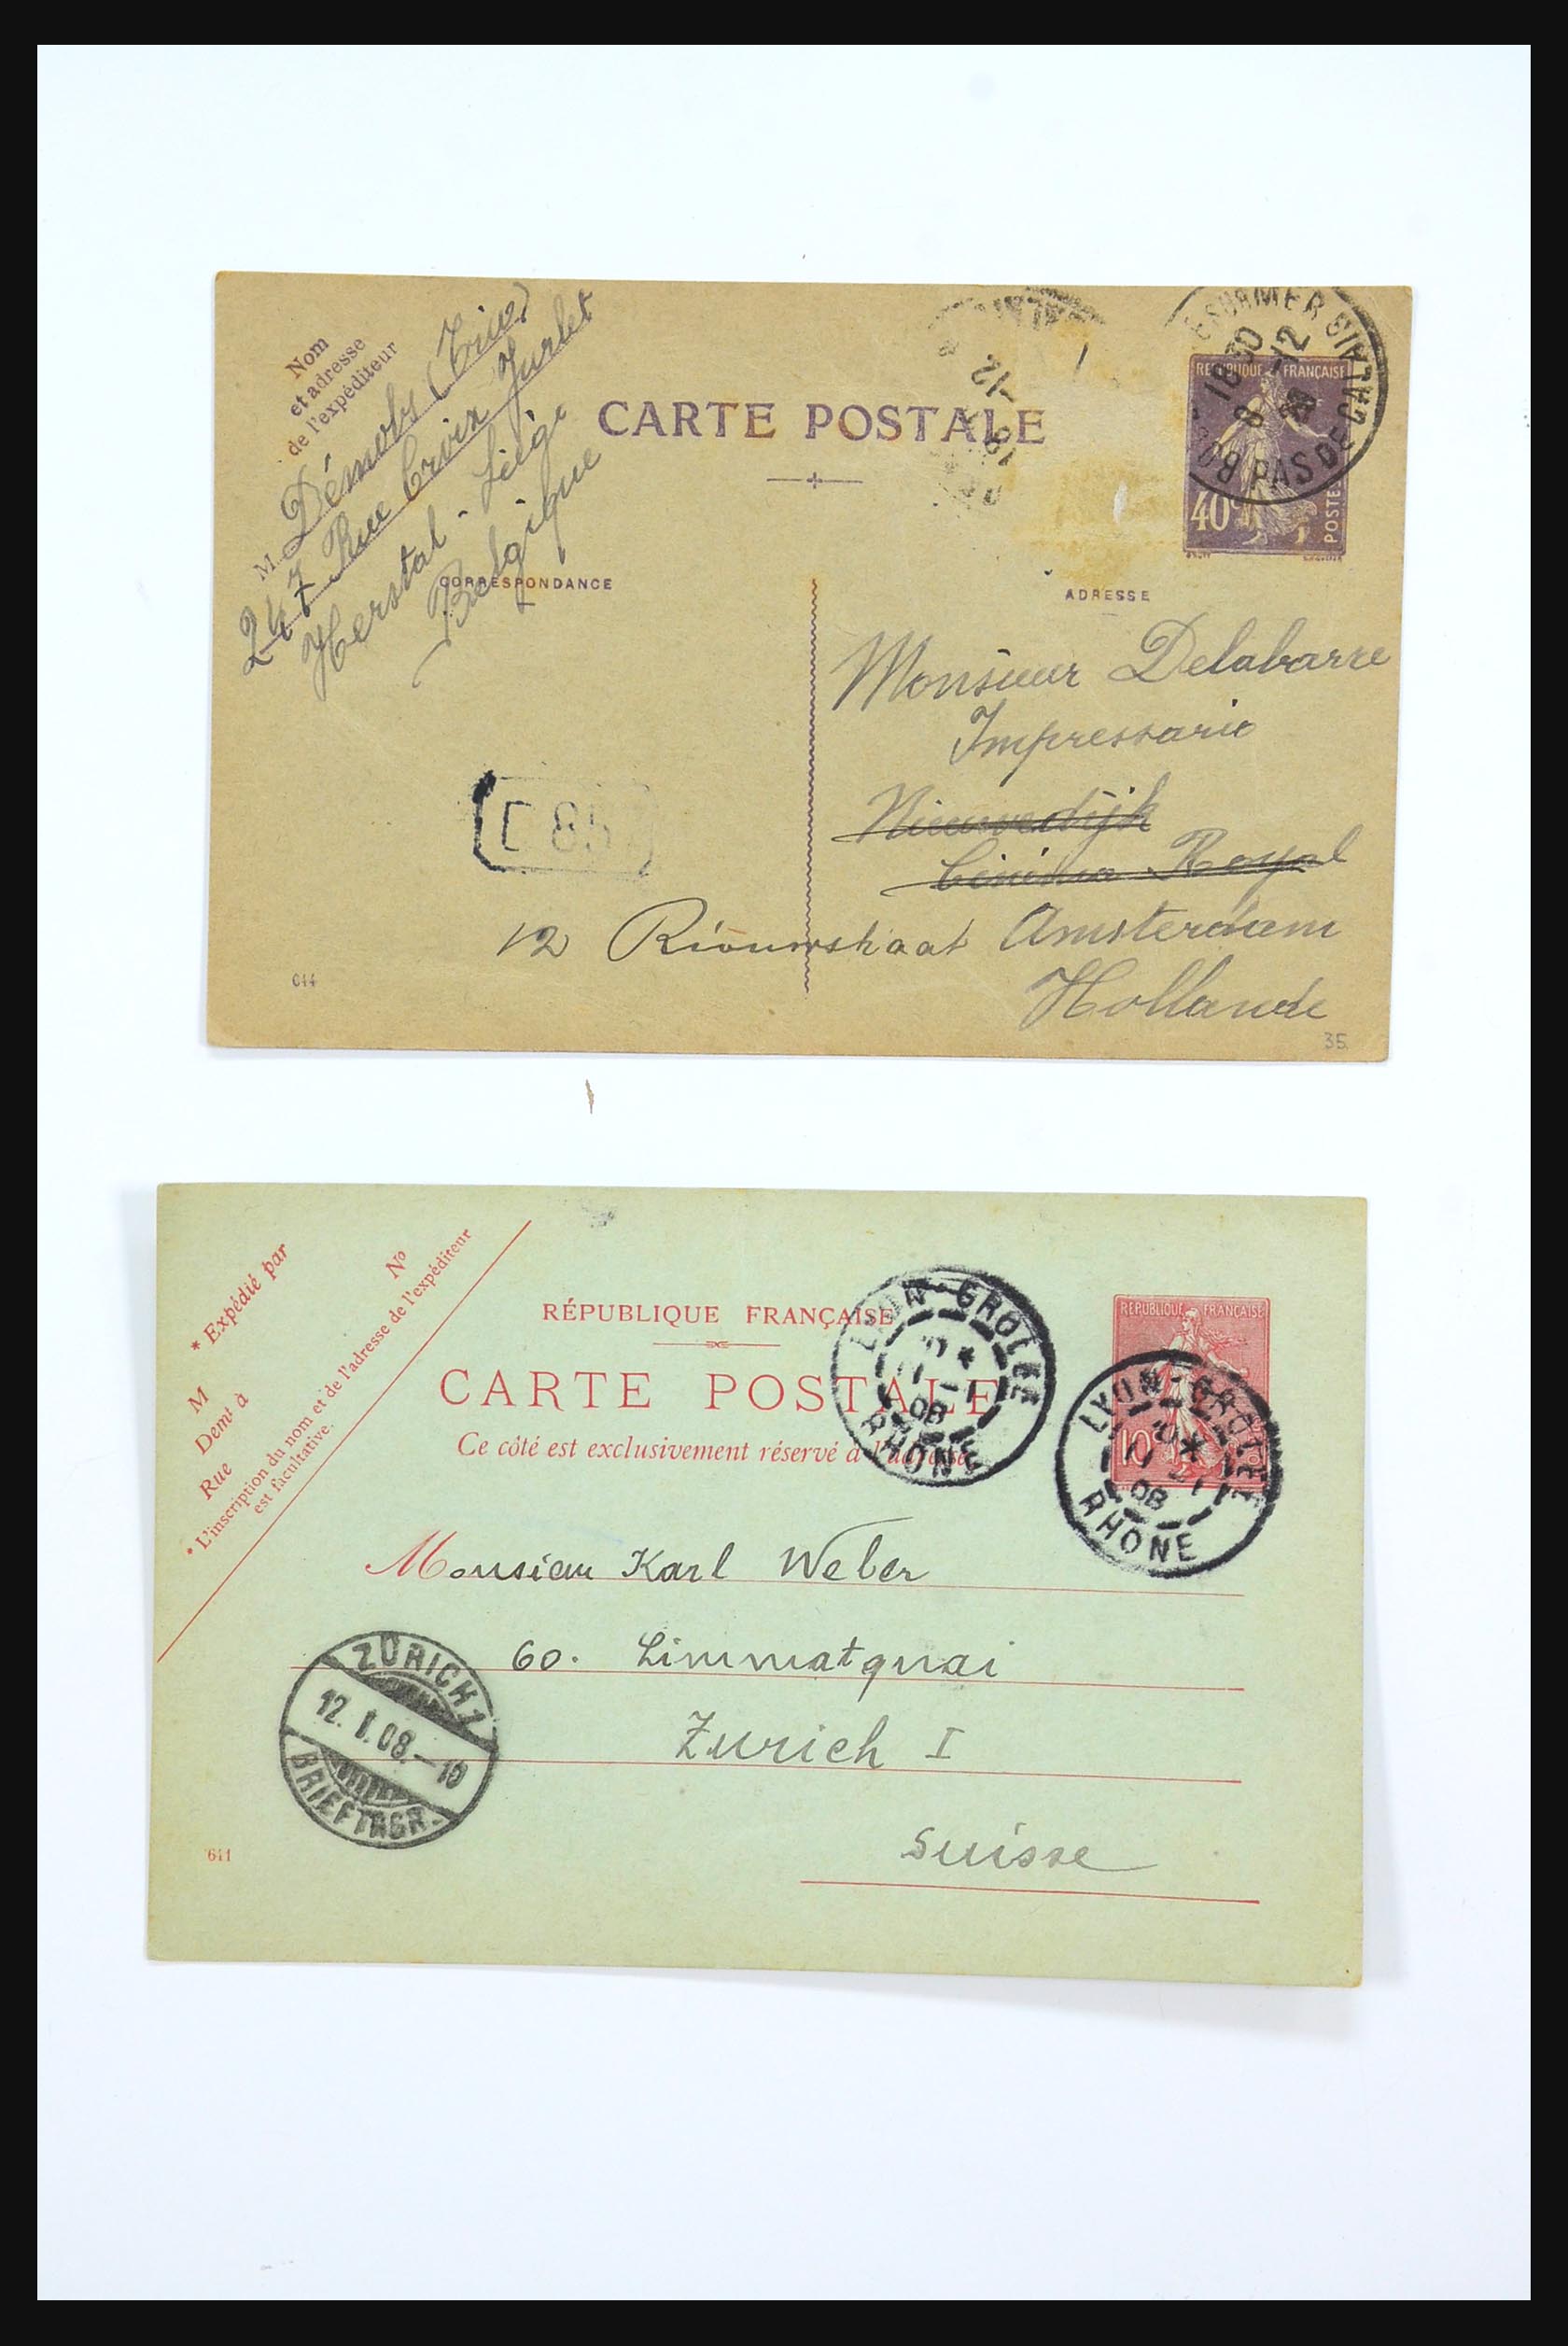 Nom
et adresse
de l'expéditeur
M. Démols
247 Rue Croix Jurlet
Herstal - Liège
Belgique
CARTE POSTALE
RÉPUBLIQUE FRANÇAISE
40c
POSTES
PAS DE CALAIS
18 30
8 -12
-12
CORRESPONDANCE
ADRESSE
Monsieur Delabarre
Impressario
Nieuwedijk
Cinéma Royal
12 Riouwstraat Amsterdam
Hollande
85
044
35
* Expédié par
M
Demt à
Rue
No
* L'inscription du nom et de l'adresse de l'expéditeur
est facultative.
RÉPUBLIQUE FRANÇAISE
CARTE POSTALE
Ce côté est exclusivement réservé à l'adresse
REPUBLIQUE FRANÇAISE
10
LYON-GROLEE
08
RHONE
LYON-GROLEE
08
RHONE
Monsieur Karl Weber
60. Limmatquai
Zurich I
Suisse
ZÜRICH 1
12. I. 08.-10
BRIEFTRGR.
641